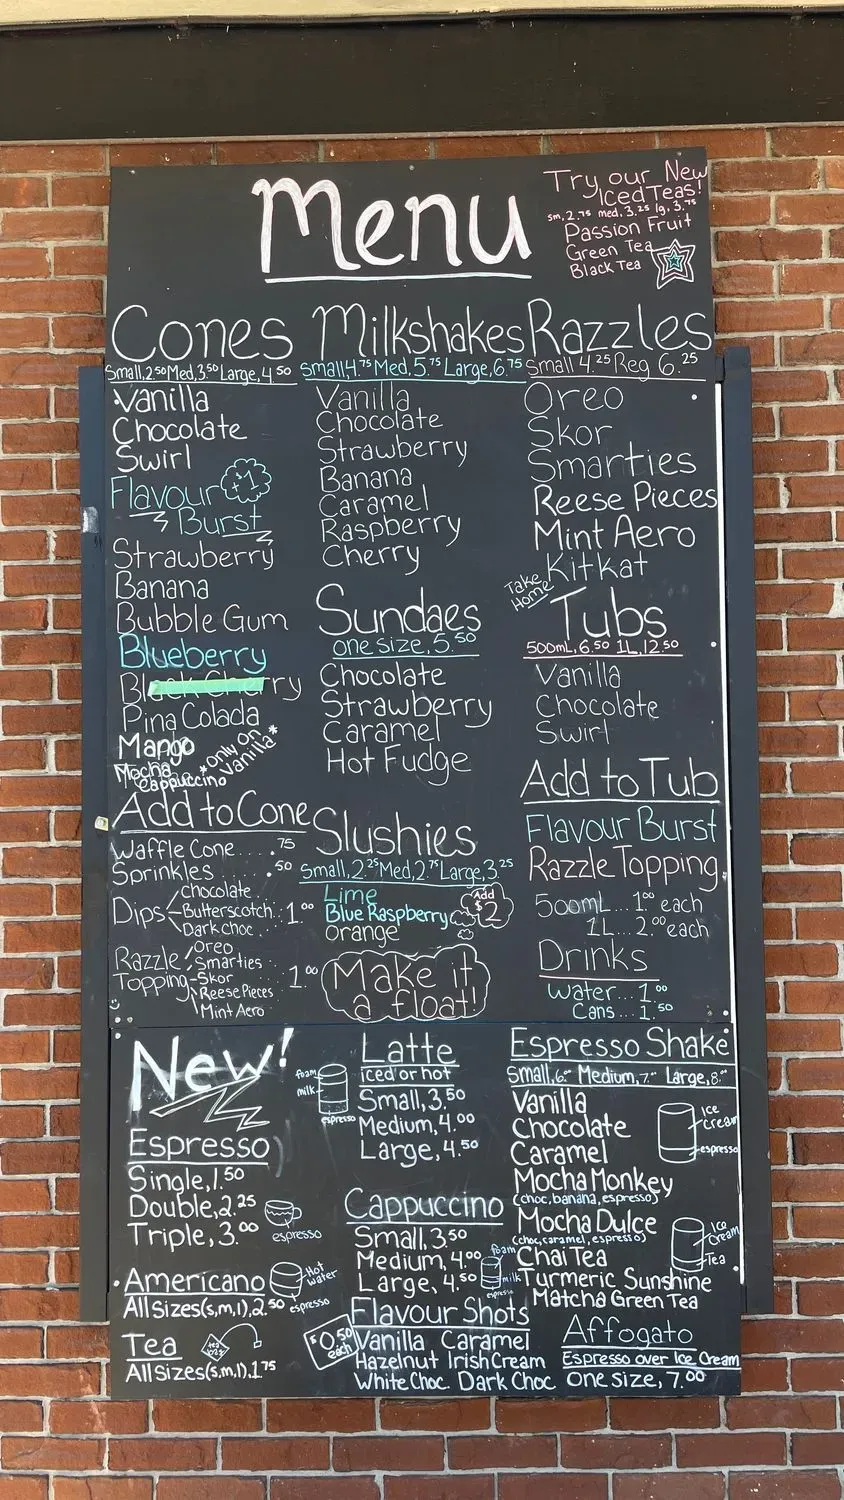 Menu
Try our New
Iced Teas!
sm, 2.75 med, 3.25 lg, 3.75
Passion Fruit
Green Tea
Black Tea
Cones
Small, 2.50 Med, 3.50 Large, 4.50
Vanilla
Chocolate
Swirl
Flavour +1
Burst
Strawberry
Banana
Bubble Gum
Blueberry
Pina Colada
Mango
Mocha
Cappuccino
*only on
Vanilla*
Add to Cone
Waffle Cone....75
Sprinkles.....50
Dips
chocolate
Butterscotch..
Dark choc...
1.00
Razzle
Topping
Oreo
Smarties
Skor
Reese Pieces
Mint Aero
1.00
Milkshakes
Small 4.75 Med, 5.75 Large, 6.75
Vanilla
Chocolate
Strawberry
Banana
Caramel
Raspberry
Cherry
Sundaes
one size, 5.50
Chocolate
Strawberry
Caramel
Hot Fudge
Slushies
Small, 2.25 Med, 2.75 Large, 3.25
Lime
Blue Raspberry
Orange
Add
$2
Make it
a float!
Razzles
Small 4.25 Reg 6.25
Oreo
Skor
Smarties
Reese Pieces
Mint Aero
Kitkat
Take
Home
Tubs
500mL, 6.50 1L, 12.50
Vanilla
Chocolate
Swirl
Add to Tub
Flavour Burst
Razzle Topping
500mL...1.00 each
1L...2.00 each
Drinks
Water...1.00
Cans...1.50
New!
Espresso
Single, 1.50
Double, 2.25
Triple, 3.00
espresso
Americano
All Sizes (s,m,l), 2.50
Hot
water
espresso
Tea
All sizes (s,m,l), 1.75
tea
bag
Latte
iced or hot
Small, 3.50
Medium, 4.00
Large, 4.50
foam
milk
espresso
Cappuccino
Small, 3.50
Medium, 4.00
Large, 4.50
foam
milk
espresso
Flavour Shots
$0.50
each
Vanilla Caramel
Hazelnut Irish Cream
White Choc. Dark Choc
Espresso Shake
Small, 6.00 Medium, 7.00 Large, 8.00
Vanilla
Chocolate
Caramel
Mocha Monkey
(choc, banana, espresso)
Mocha Dulce
(choc, caramel, espresso)
Chai Tea
Turmeric Sunshine
Matcha Green Tea
Ice
cream
espresso
Ice
cream
Tea
Affogato
Espresso over Ice Cream
One size, 7.00